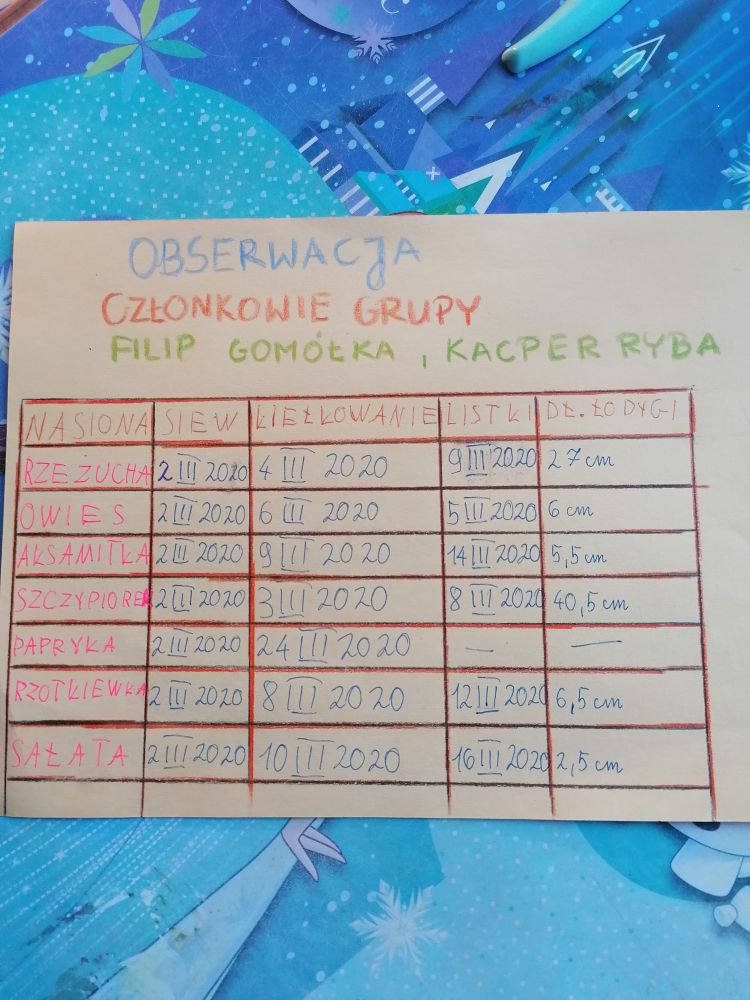 OBSERWACJA
CZŁONKOWIE GRUPY
FILIP GOMÓŁKA, KACPER RYBA
NASIONA SIEW KIEŁKOWANIE LISTKI DŁ.ŁODYGI
RZEŻUCHA 2 III 2020 4 III 2020 9 III 2020 27 cm
OWIES 2 III 2020 6 III 2020 5 III 2020 6 cm
AKSAMITKA 2 III 2020 9 III 2020 14 III 2020 5,5 cm
SZCZYPIOREK 2 III 2020 3 III 2020 8 III 2020 40,5 cm
PAPRYKA 2 III 2020 24 III 2020 — —
RZOTKIEWKA 2 III 2020 8 III 2020 12 III 2020 6,5 cm
SAŁATA 2 III 2020 10 III 2020 16 III 2020 2,5 cm